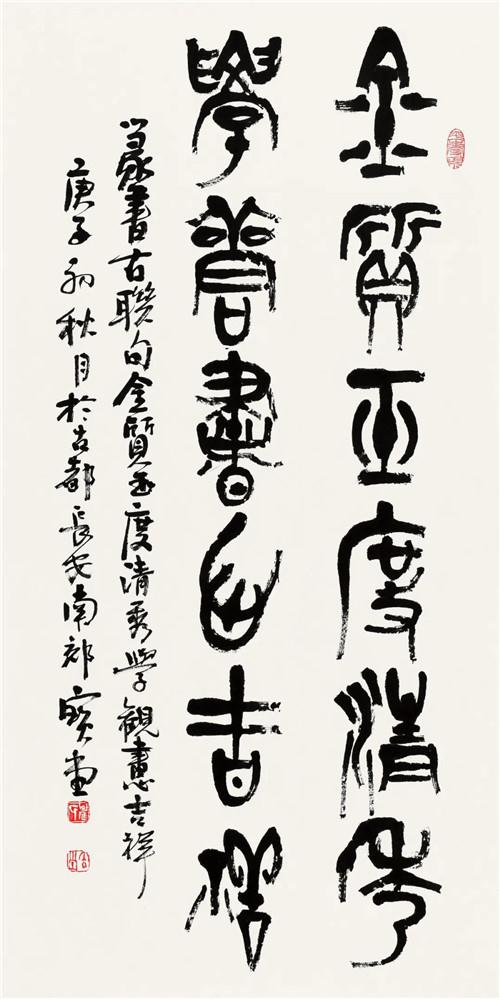 金質玉度清秀
學書心吉祥
篆書古聯句金質玉度清秀學觀吉祥
庚子初秋月於古都長安南郊